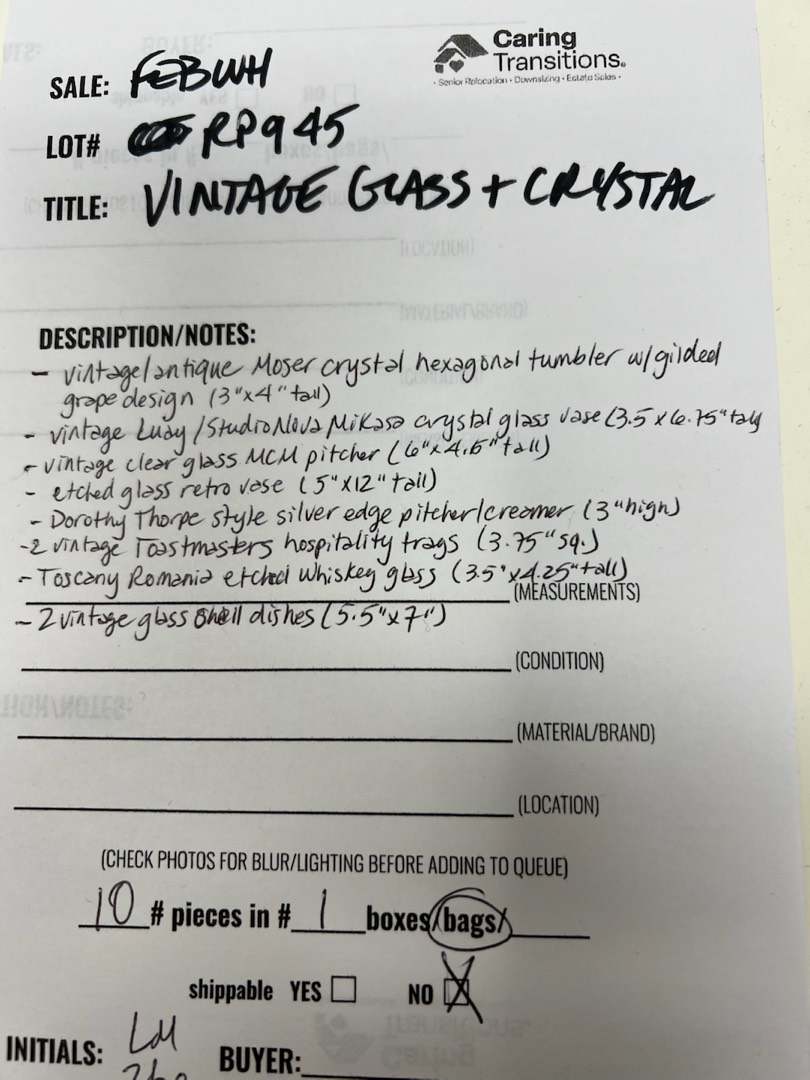 Caring
Transitions.
• Senior Relocation • Downsizing • Estate Sales •
SALE: FEBWH
LOT# RP945
TITLE: VINTAGE GLASS + CRYSTAL
DESCRIPTION/NOTES:
- vintage/antique Moser crystal hexagonal tumbler w/gilded
grape design (3"x4" tall)
- vintage Luay/Studio Nova Mikasa crystal glass vase (3.5 x 6.75" tall
- vintage clear glass MCM pitcher (6"x4.5" tall)
- etched glass retro vase (5"x12" tall)
- Dorothy Thorpe style silver edge pitcher/creamer (3"high)
- 2 vintage Toastmasters hospitality trays (3.75" sq.)
- Toscany Romania etched whiskey glass (3.5"x4.25" tall)
(MEASUREMENTS)
- 2 vintage glass shell dishes (5.5"x7")
(CONDITION)
(MATERIAL/BRAND)
(LOCATION)
(CHECK PHOTOS FOR BLUR/LIGHTING BEFORE ADDING TO QUEUE)
10 # pieces in # 1 boxes/bags/
shippable YES NO X
INITIALS: LM BUYER: